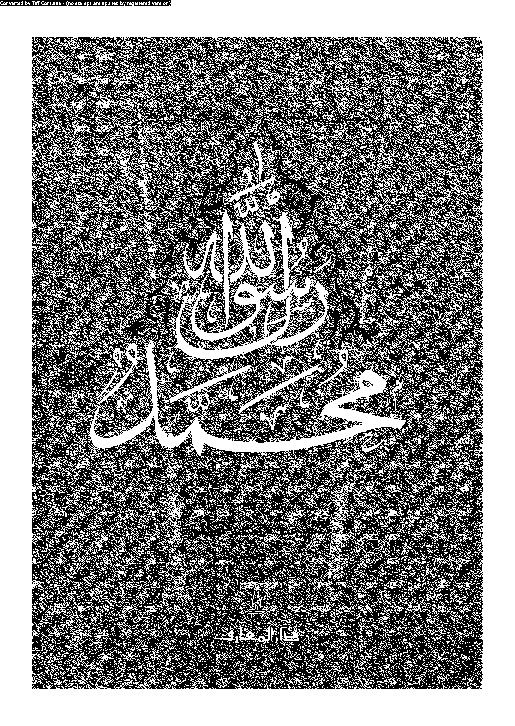 Converted by Tiff Combine - (no stamps are applied by registered version)
محمد
رسول الله
دار المعارف